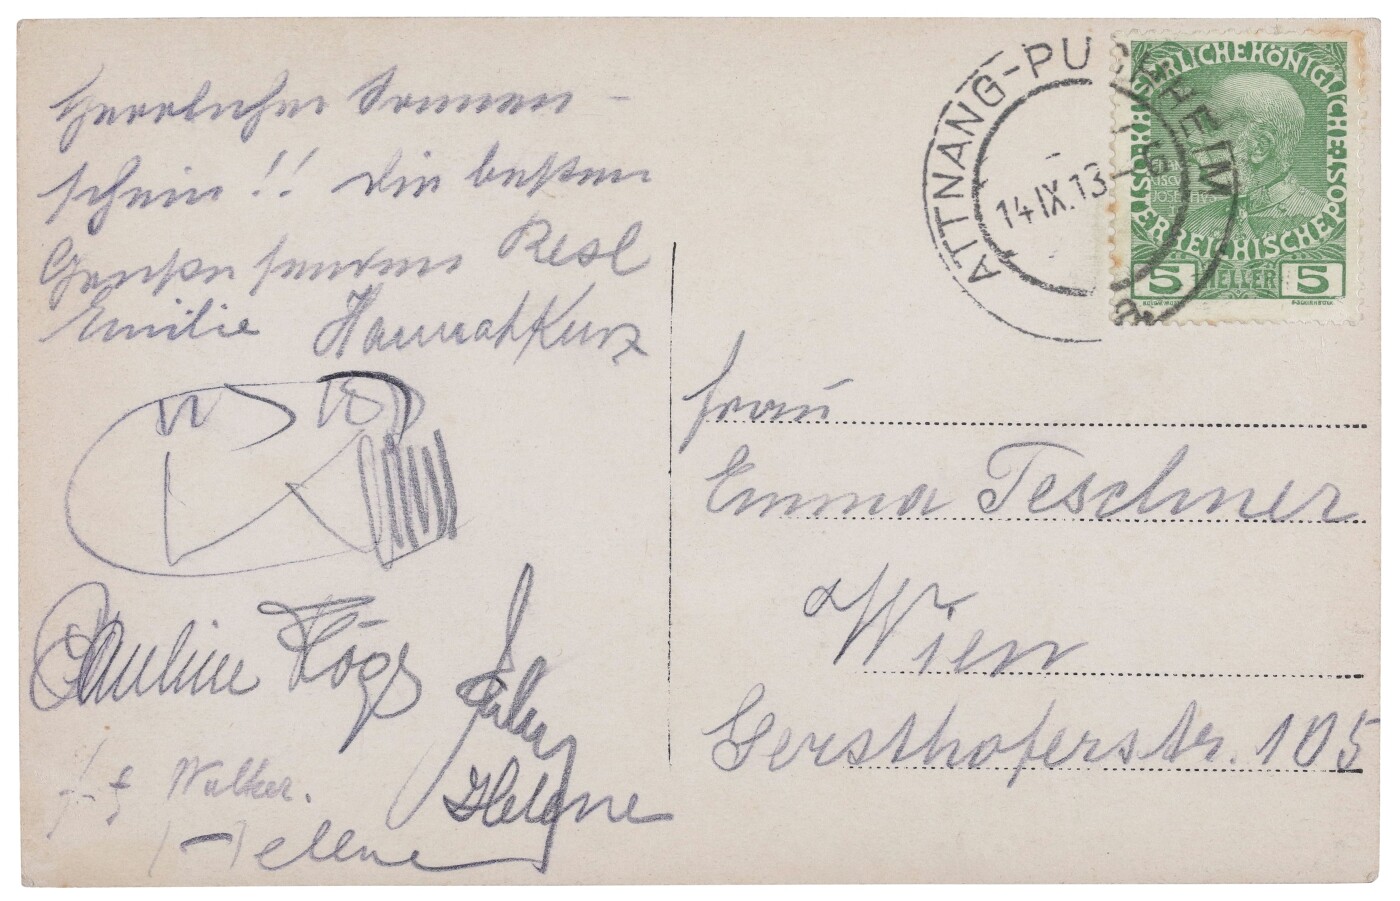 Herrlicher Sonnen-
schein!! die besten
Grüsse senden Resl
Emilie Hannah Kurz
Pauline
Helene
Walker.
Helene
ATTNANG-PUCHHEIM
14 IX.13-6
KAISERLICHEKÖNIGLICHE ÖSTERREICHISCHE POST
5 HELLER 5
Frau
Emma Teschner
Wien
Gersthoferstr. 105